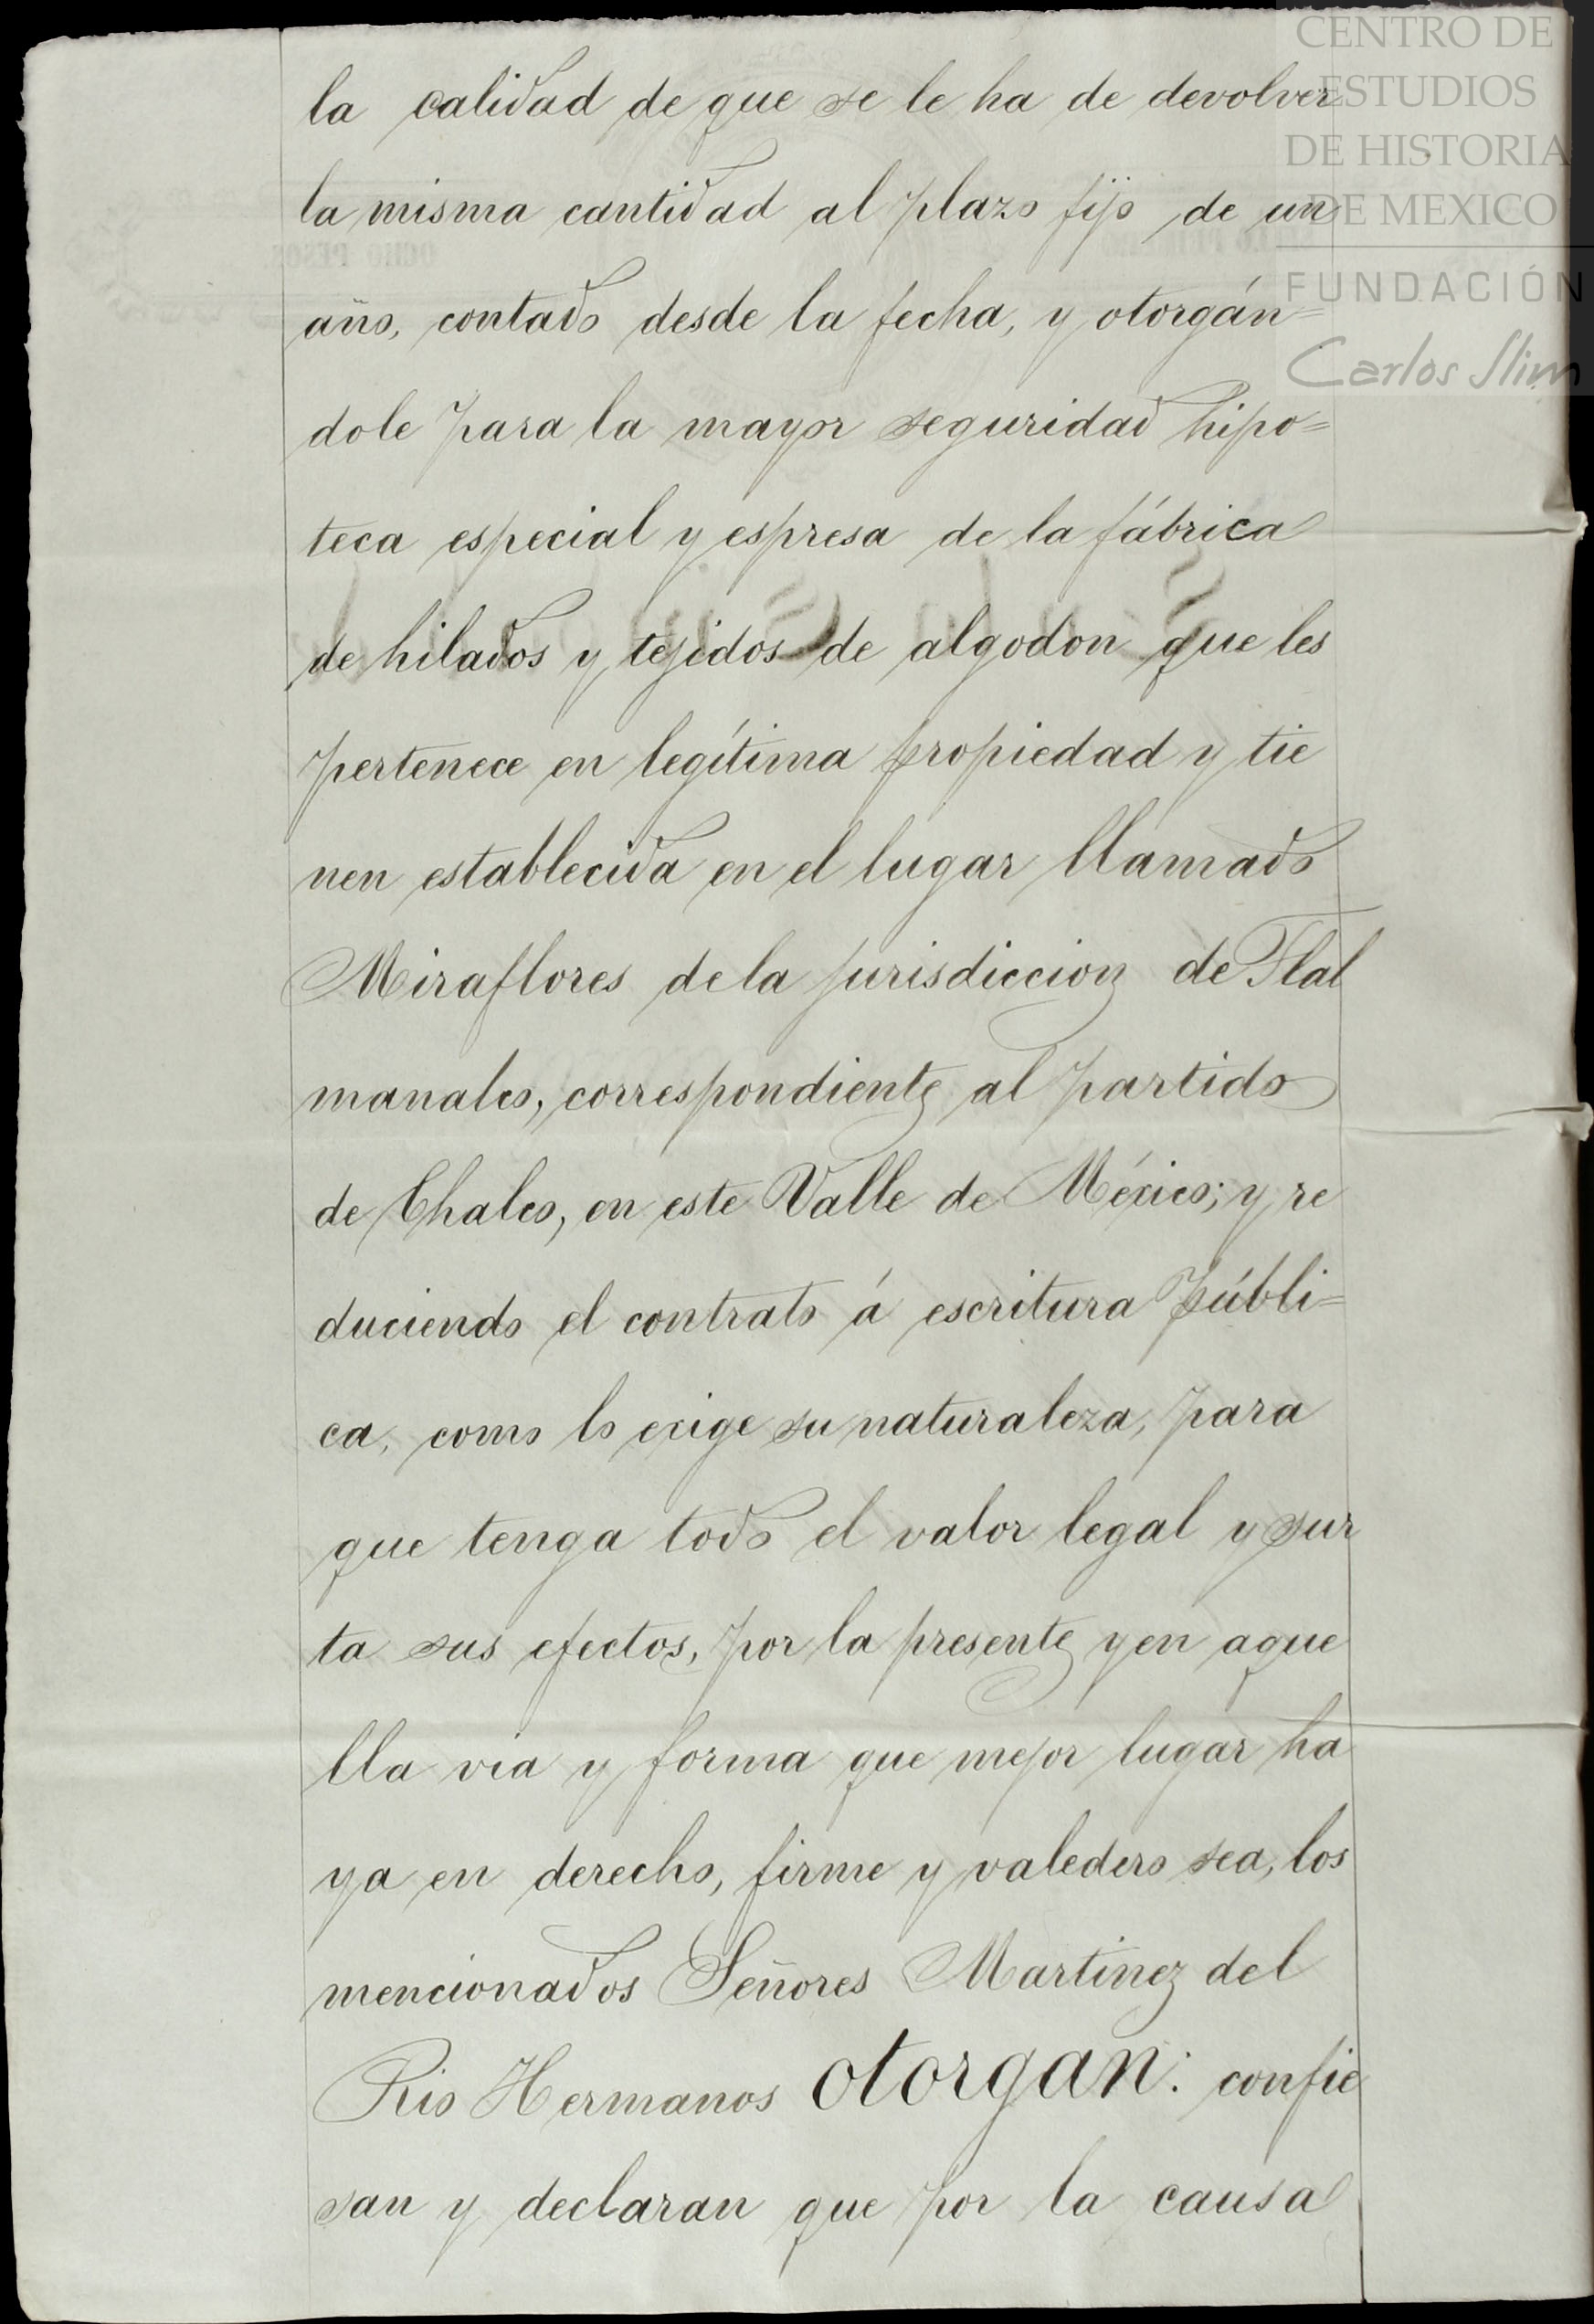 CENTRO DE
ESTUDIOS
DE HISTORIA
DE MEXICO
FUNDACIÓN
Carlos Slim
la calidad de que se le ha de devolver
la misma cantidad al plazo fijo de un
año, contado desde la fecha, y otorgán=
dole para la mayor seguridad hipo=
teca especial y espresa de la fábrica
de hilados y tejidos de algodon que les
pertenece en legítima propiedad y tie
nen establecida en el lugar llamado
Miraflores de la jurisdiccion de Tlal
manalco, correspondiente al partido
de Chalco, en este Valle de México; y re
duciendo el contrato á escritura públi=
ca, como lo exige su naturaleza, para
que tenga todo el valor legal y sur
ta sus efectos, por la presente y en aque
lla via y forma que mejor lugar ha
ya en derecho, firme y valedero sea, los
mencionados Señores Martinez del
Rio Hermanos otorgan: confie
san y declaran que por la causa